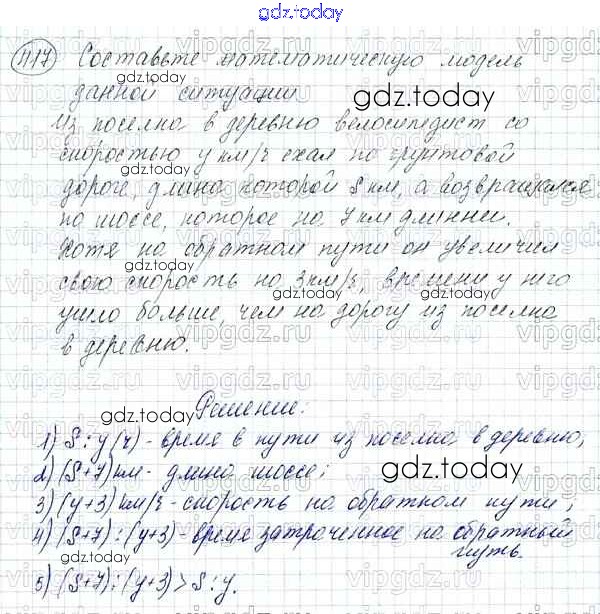 gdz.today
417 Составьте математическую модель
данной ситуации.
Из поселка в деревню велосипедист со
скоростью y км/ч ехал по грунтовой
дороге, длина которой S км, а возвращался
по шоссе, которое на 7 км длинней.
Хотя на обратном пути он увеличил
свою скорость на 3 км/ч, времени у него
ушло больше, чем на дорогу из поселка
в деревню.
Решение:
1) S : y (ч) - время в пути из поселка в деревню;
2) (S+7) км - длина шоссе;
3) (y+3) км/ч - скорость на обратном пути;
4) (S+7) : (y+3) - время затраченное на обратный
путь.
5) (S+7) : (y+3) > S : y.